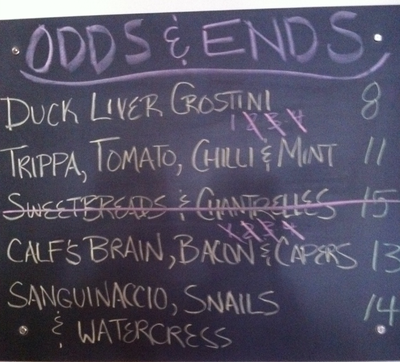 ODDS & ENDS
DUCK LIVER CROSTINI 8
TRIPPA, TOMATO, CHILLI & MINT 11
SWEETBREADS & CHANTRELLES 15
CALF'S BRAIN, BACON & CAPERS 13
SANGUINACCIO, SNAILS 14
& WATERCRESS